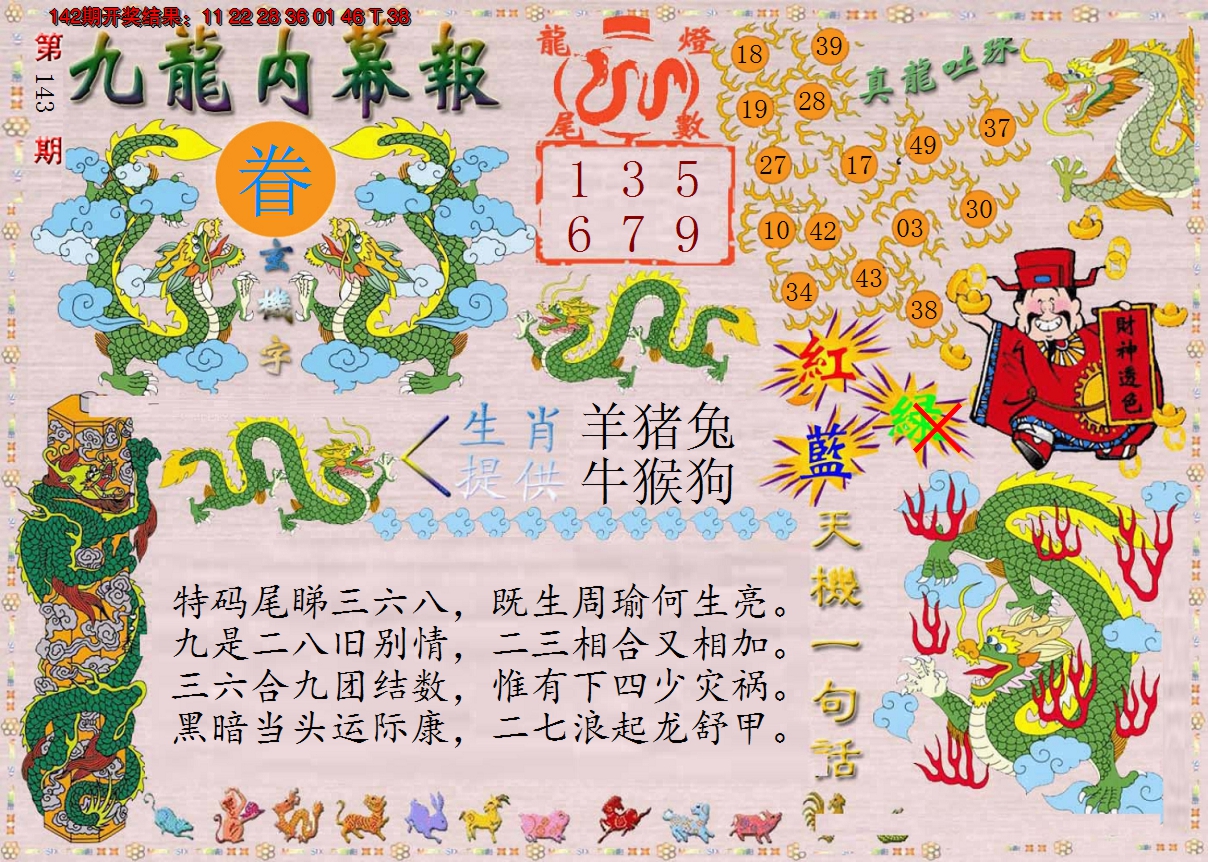 142期开奖结果：11 22 28 36 01 46 T 38
第143期
九龍内幕報
眷
玄機字
龍燈尾數
1 3 5
6 7 9
真龍吐珠
18 39
19 28
27 17 49 37
10 42 03 30
34 43 38
財神透色
紅
綠
藍
生肖提供
羊猪兔
牛猴狗
天機一句话
特码尾睇三六八，既生周瑜何生亮。
九是二八旧别情，二三相合又相加。
三六合九团结数，惟有下四少灾祸。
黑暗当头运际康，二七浪起龙舒甲。